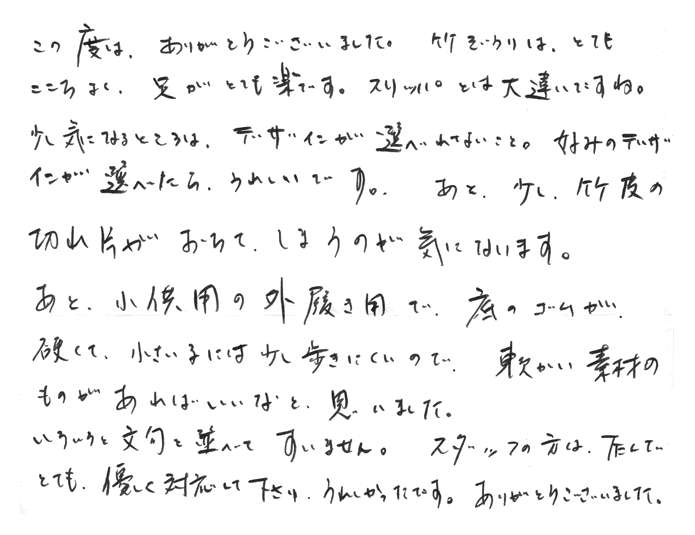 この度は、ありがとうございました。 竹ぞうりは、とても
こころよく、足がとても楽です。スリッパとは大違いですね。
少し気になるところは、デザインが選べれないこと。好みのデザ
インが選べたら、うれしいです。 あと、少し、竹皮の
切れ片がおちて、しまうのが気になります。
あと、小供用の外履き用で、底のゴムが、
硬くて、小さい子には少し歩きにくいので、軟かい素材の
ものがあればいいなと、思いました。
いろいろと文句を並べてすいません。 スタッフの方は、
とても、優しく対応して下さり、うれしかったです。ありがとうございました。